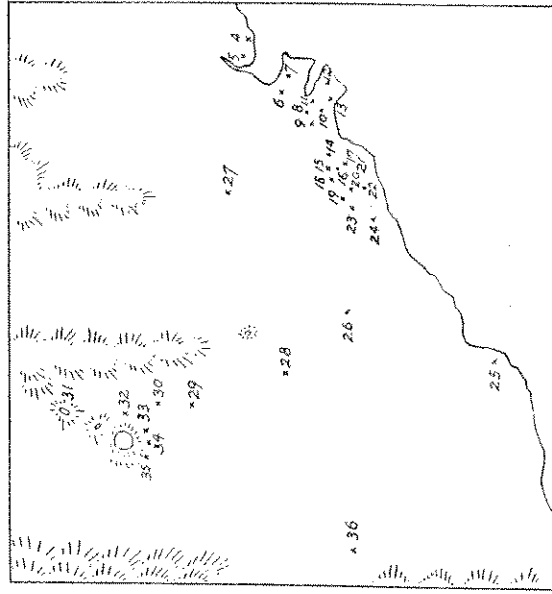 4
5
6
7
8
9
10
11
12
13
14
15
16
17
18
19
20
21
22
23
24
25
26
27
28
29
30
31
32
33
34
35
36